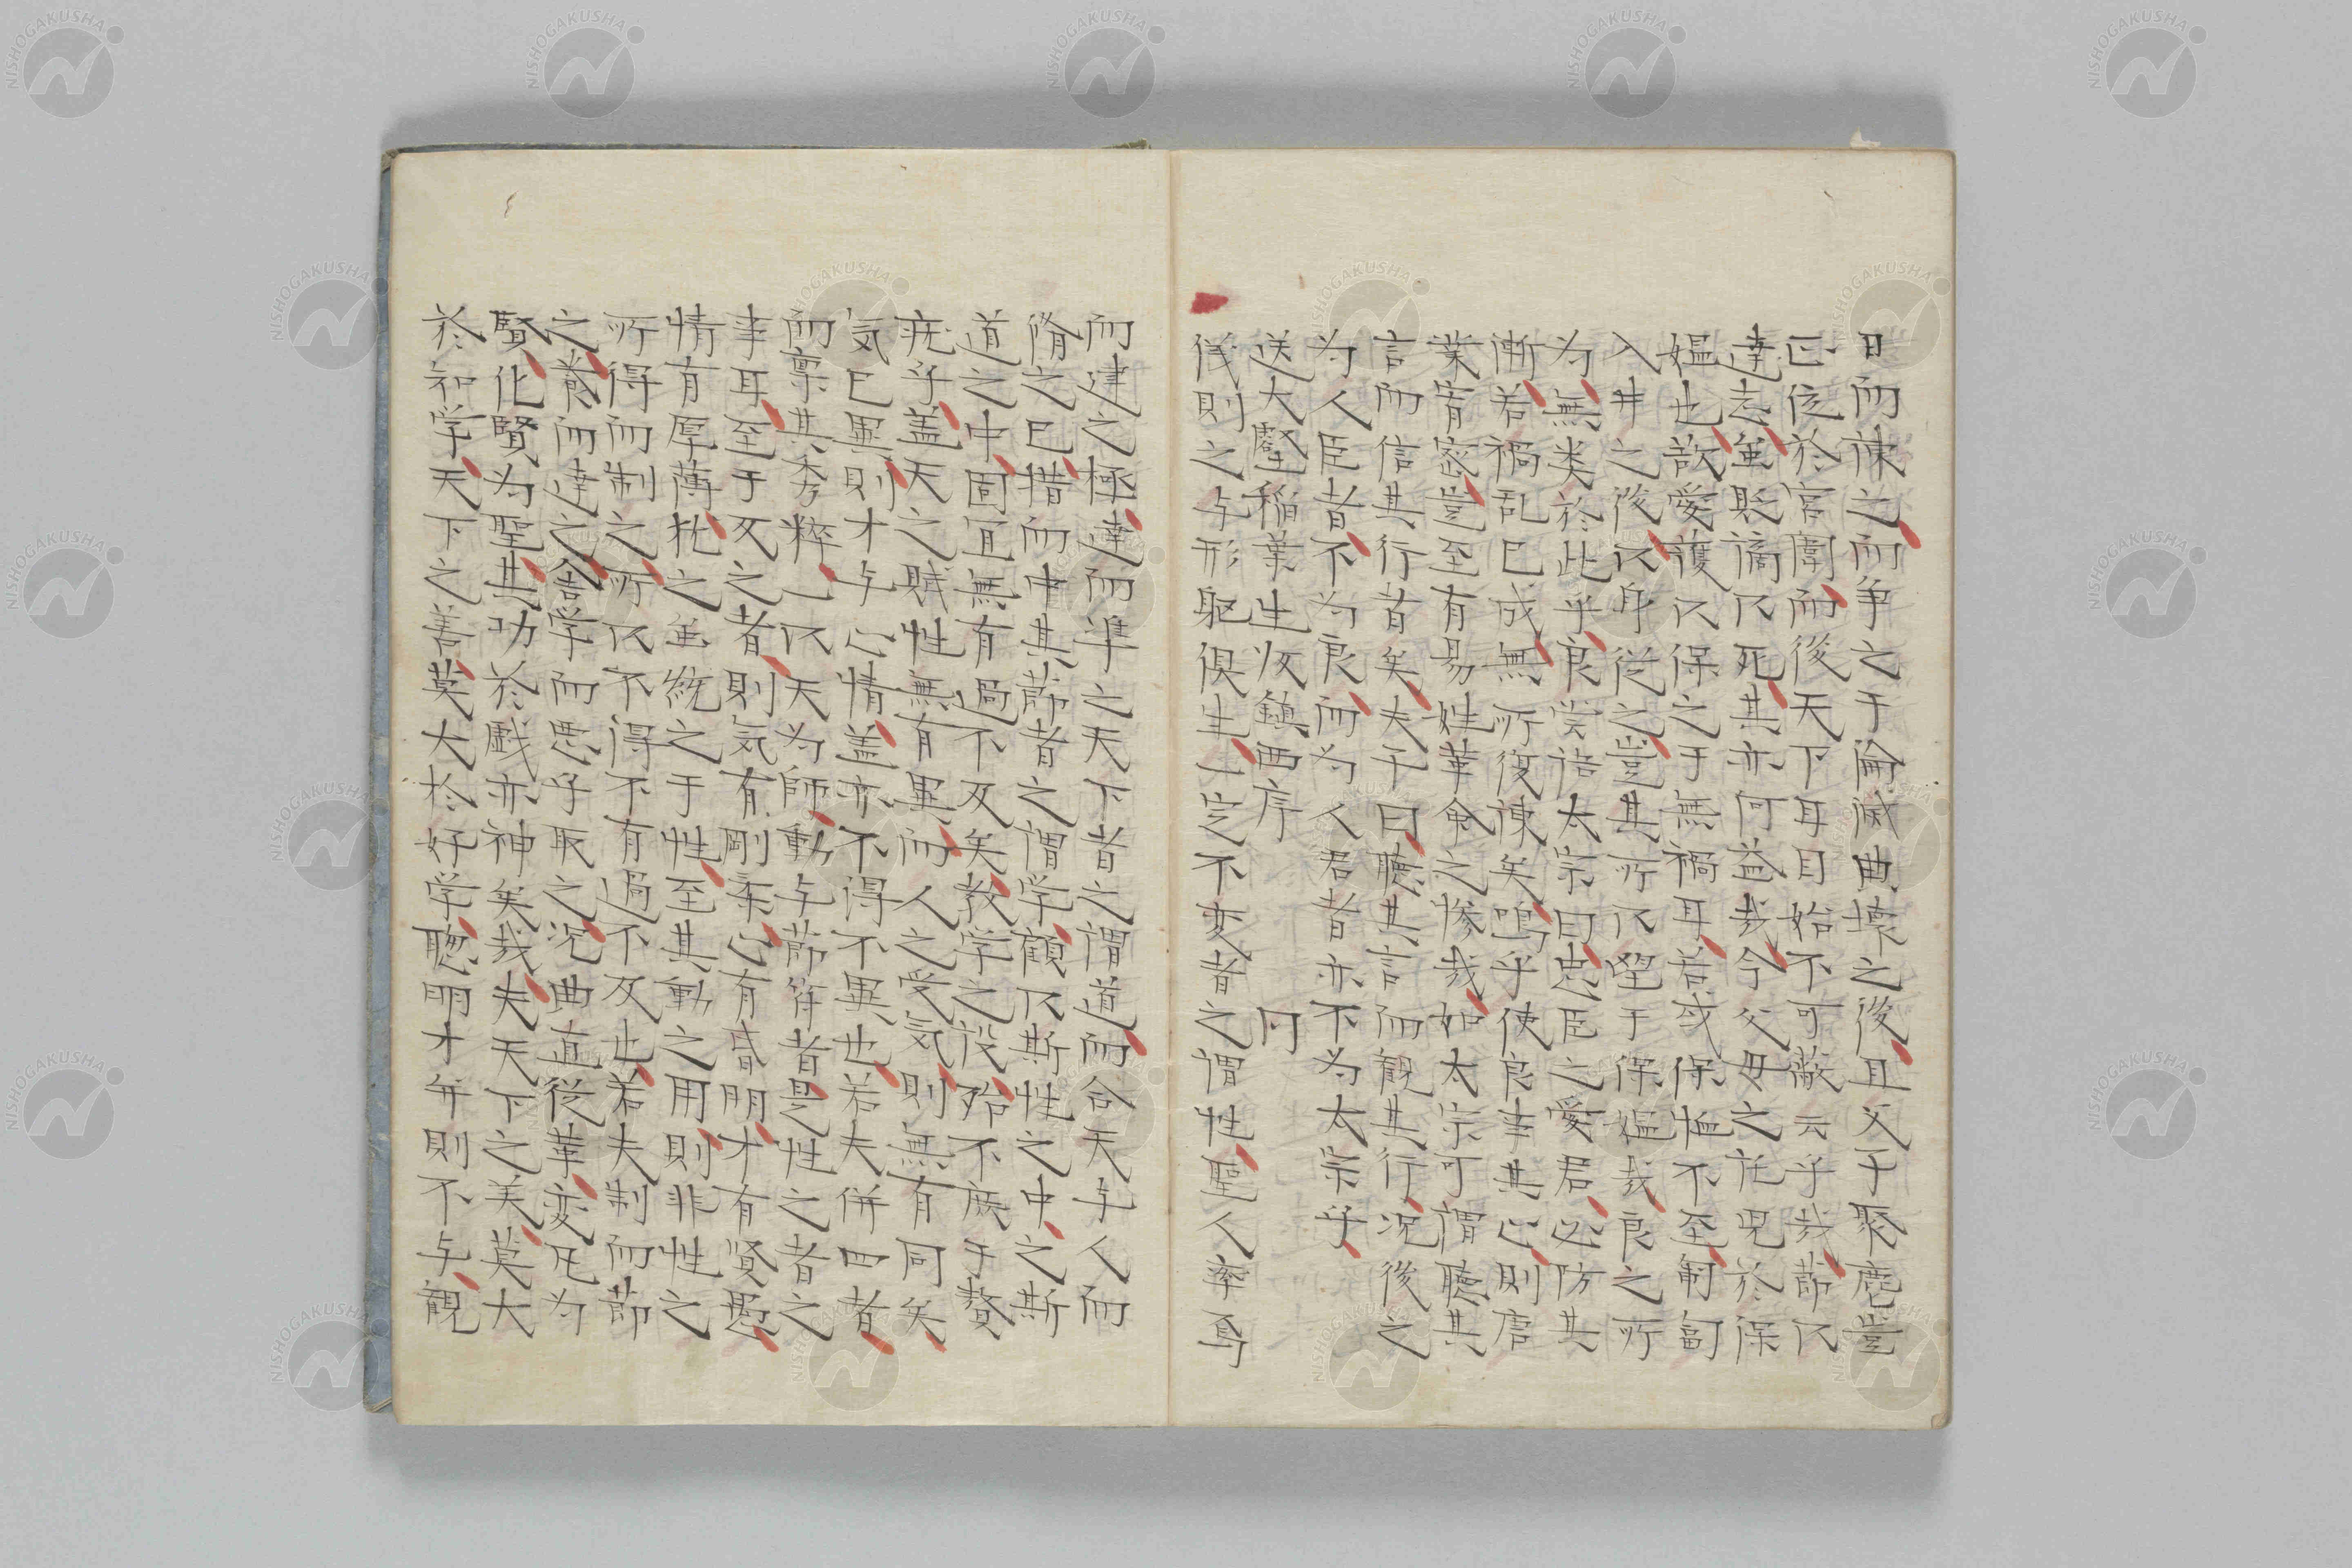 日而諫之而争之于淪滅曲壊之後且父子聚麀豈
已位於宮闈而後天下耳目始不可蔽云乎哉節以
達志無貶謫以死其亦何益哉今父母之託児於保
媼也敢愛護以保之于無禍耳若或保媼不至匍匐
入井之後以身従之豈其所以望于保媼哉良之所
為無類於此乎良嘗語太宗曰忠臣之愛君必防其
漸若禍乱已成無所復諫矣嗚乎使良事其心則唐
業寄密豈至有易姓革命之惨哉如太宗可謂聴其
言而信其行者矣夫子曰聴其言而観其行况後之
為人臣者不為良而為人君者亦不為太宗乎
送大壑稲葉生収鎮西序　同
伐則之与形躯俱生一定不変者之謂性聖人率焉
而建之極達而準之天下者之謂道而合天与人而
脩之已措而中其節者之謂学顧以斯性之中之斯
道之中固宜無有過不及矣教学之設殆不庶于贅
疣乎盖天之賦性無有異而人之受気則無有同矣
気已異則才与心情盖亦不得不異也若夫併四者
而稟其秀粹一以天為師動与節符者是性之者之
事耳至于反之者則気有剛柔心有昏明才有賢愚
情有厚薄牝之無統之于性至其動之用則非性之
所得而制之所以不得不有過不及也若夫制而節
之養而達之舎学而悪乎取之况曲直従革変凡為
賢化賢為聖其功於戯亦神矣哉夫天下之美莫大
於知学天下之善莫大於好学聡明才弁則不与観